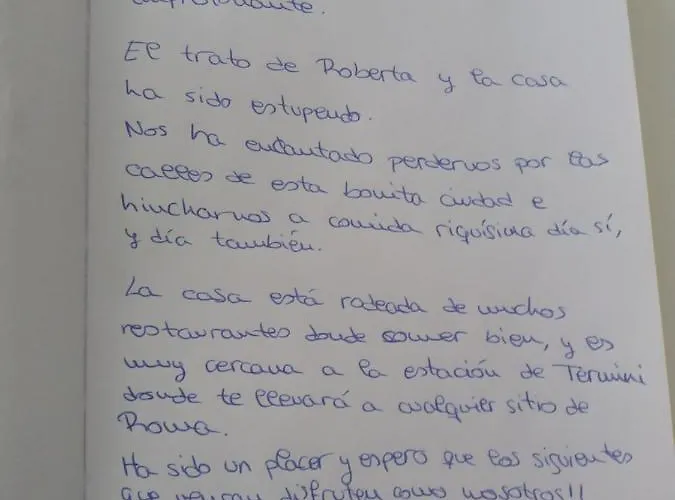 El trato de Roberta y la casa
ha sido estupendo.
Nos ha encantado perdernos por las
calles de esta bonita ciudad e
hincharnos a comida riquísima día sí,
y día también.
La casa está rodeada de muchos
restaurantes donde comer bien, y es
muy cercana a la estación de Termini
desde te llevará a cualquier sitio de
Roma.
Ha sido un placer y espero que los siguientes
que vengan disfruten como nosotros!!